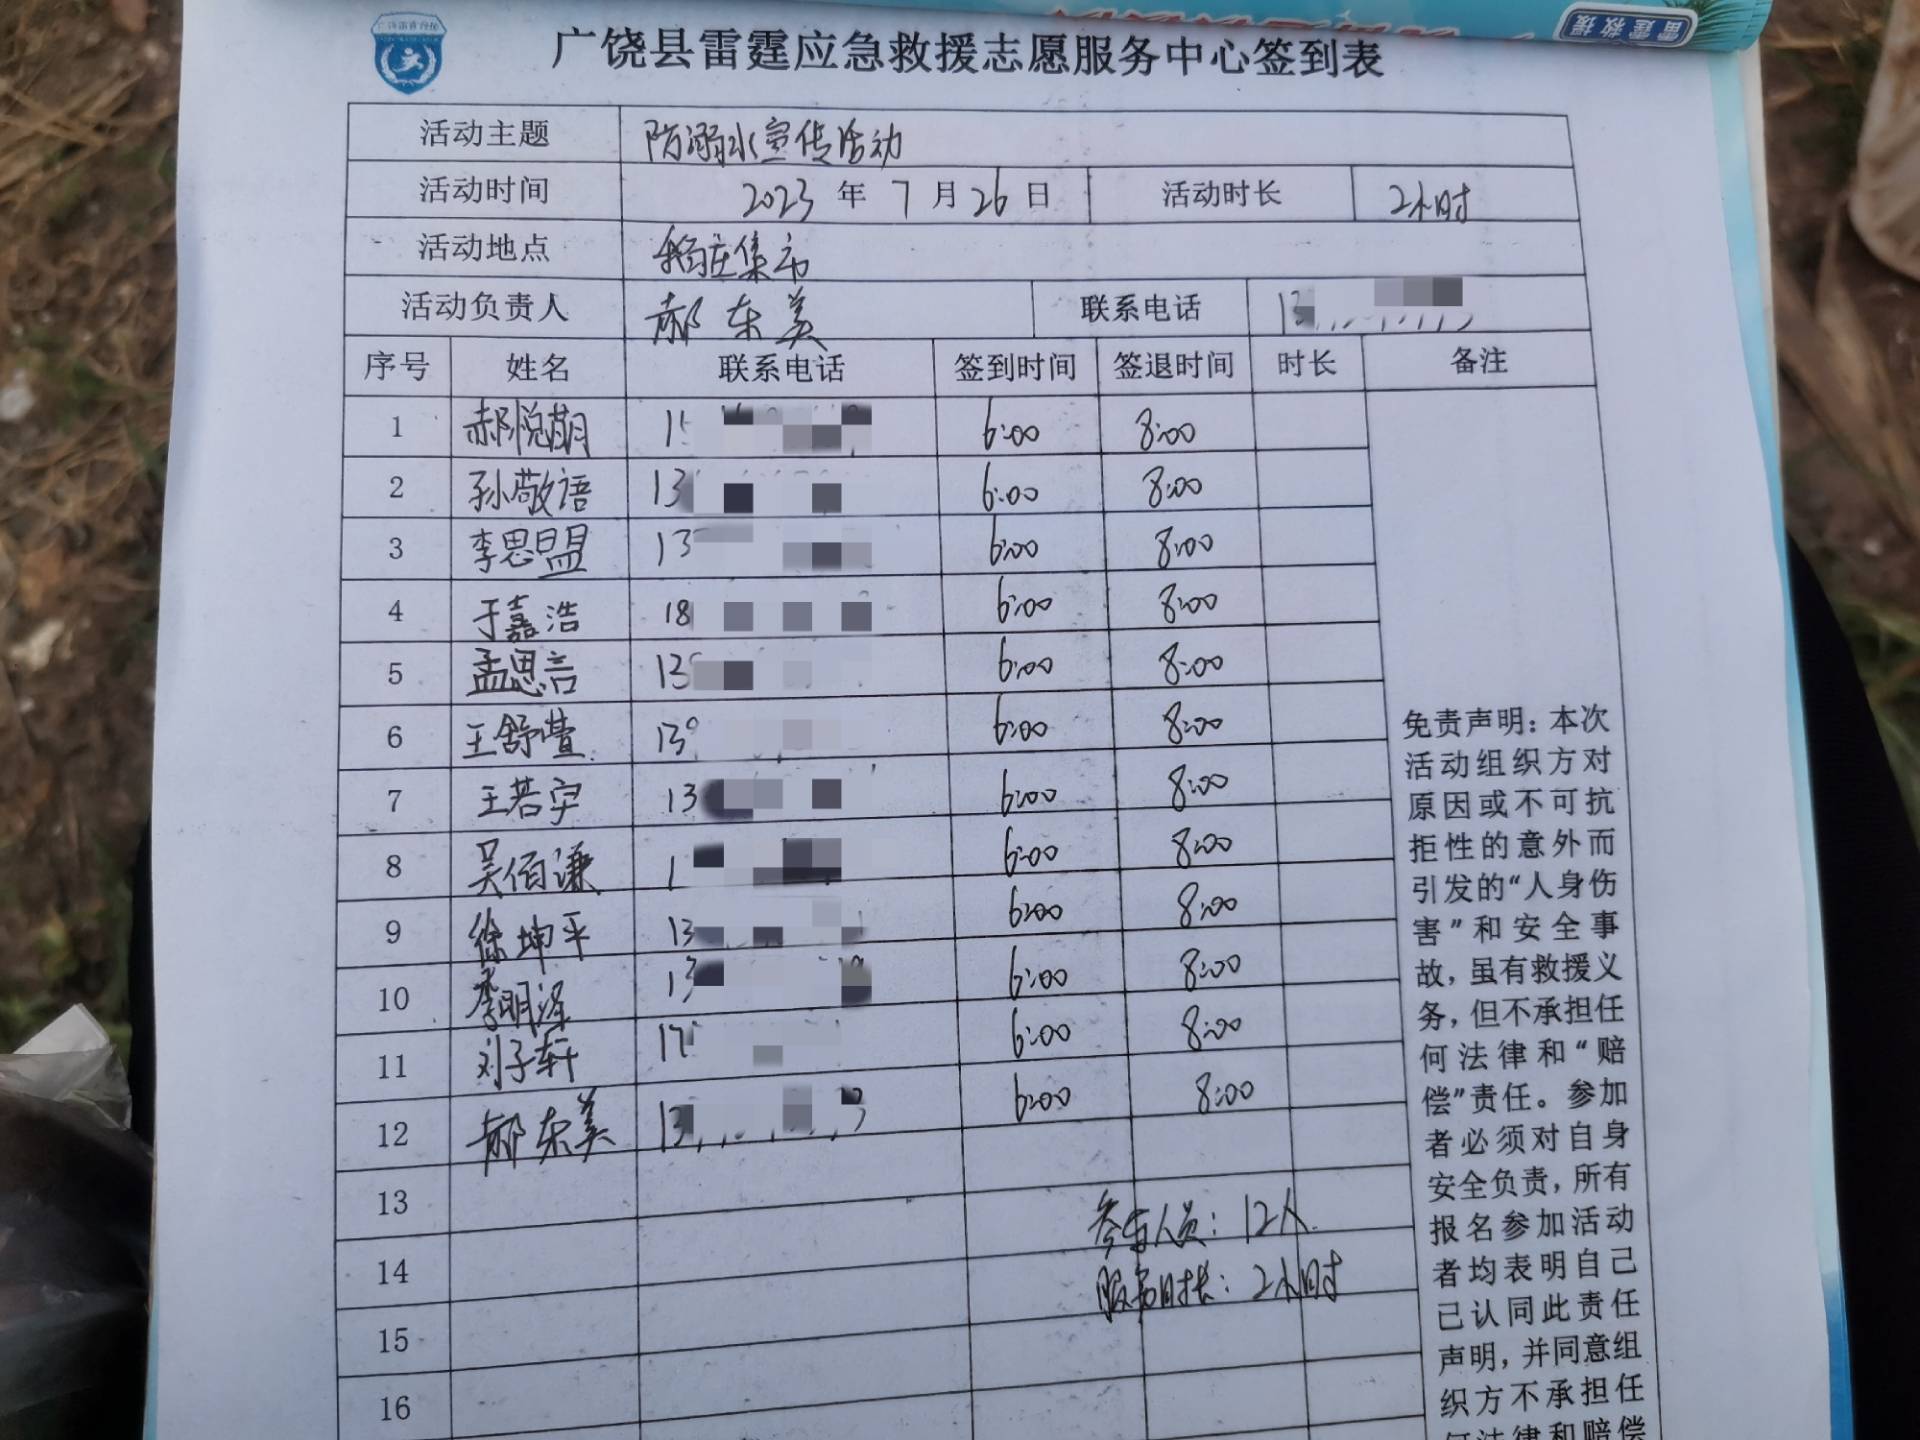 雷霆救援
广饶县雷霆应急救援志愿服务中心签到表
活动主题 防溺水宣传活动
活动时间 2023 年 7 月 26 日 活动时长 2小时
活动地点 稻庄集市
活动负责人 郝东美 联系电话 13
序号 姓名 联系电话 签到时间 签退时间 时长 备注
1 郝悦萌 15 6:00 8:00
2 孙敬语 13 6:00 8:00
3 李思盟 13 6:00 8:00
4 于嘉浩 18 6:00 8:00
5 孟思言 13 6:00 8:00
6 王舒萱 13 6:00 8:00
7 王若宇 13 6:00 8:00
8 吴佰谦 1 6:00 8:00
9 徐坤平 13 6:00 8:00
10 李明泽 13 6:00 8:00
11 刘子轩 17 6:00 8:00
12 郝东美 13 6:00 8:00
13
14
15
16
参与人员：12人
服务时长：2小时
免责声明：本次
活动组织方对
原因或不可抗
拒性的意外而
引发的“人身伤
害”和安全事
故，虽有救援义
务，但不承担任
何法律和“赔
偿”责任。参加
者必须对自身
安全负责，所有
报名参加活动
者均表明自己
已认同此责任
声明，并同意组
织方不承担任
何法律和赔偿